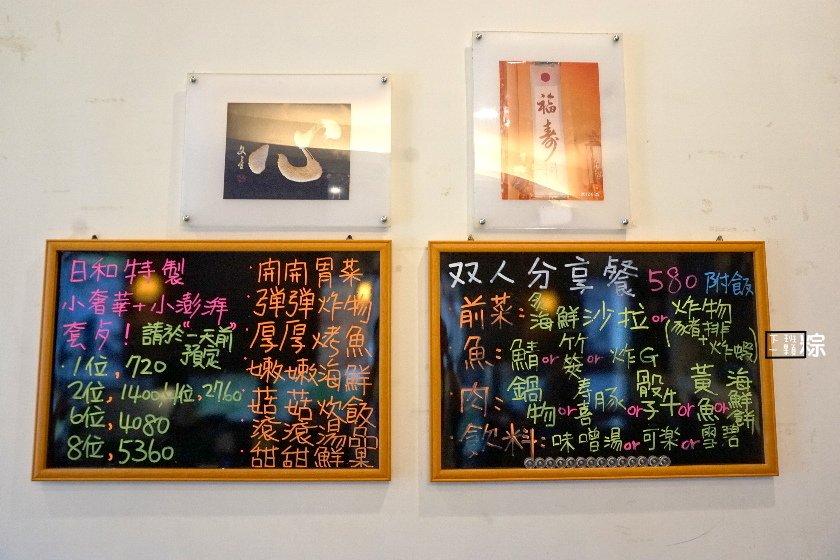 心
福壽
日和特製
小奢華+小澎湃
套夕！請於"一天前"
預定
·1位,720
2位,1400,4位,2760
6位,4080
8位,5360
·開開胃菜
·彈彈炸物
·厚厚烤魚
·嫩嫩海鮮
·菇菇炊飯
·滾滾湯品
·甜甜鮮菓
双人分享餐 580 附飯
·前菜:海鮮沙拉or炸物
(豬排+炸蝦)
·魚:鯖or竹筴or炸G
·肉:鍋物or壽喜豚or骰子牛or黃魚or海鮮餅
·飲料:味噌湯or可樂or雪碧
下一班顆粽